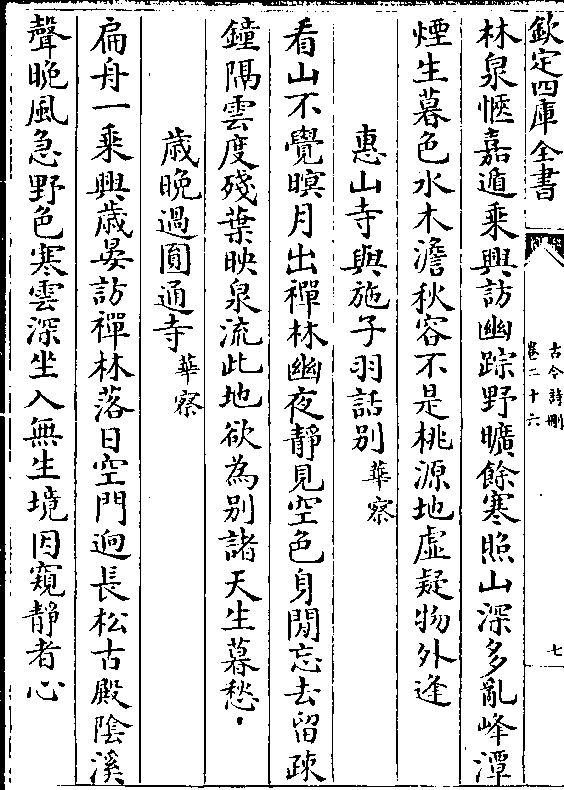 欽定四庫全書
古今詩刪
卷二十六
七
林泉愜嘉遁乘興訪幽踪野曠餘寒照山深多亂峰潭
煙生暮色水木澹秋容不是桃源地虛疑物外逢
惠山寺與施子羽話别 華察
看山不覺暝月出禪林幽夜靜見空色身閒忘去留疎
鐘隔雲度殘葉映泉流此地欲為别諸天生暮愁
歲晚過圓通寺 華察
扁舟一乘興歲晏訪禪林落日空門迥長松古殿陰溪
聲晚風急野色寒雲深坐入無生境因窺静者心